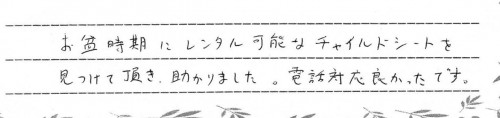 お盆時期にレンタル可能なチャイルドシートを
見つけて頂き、助かりました。電話対応良かったです。